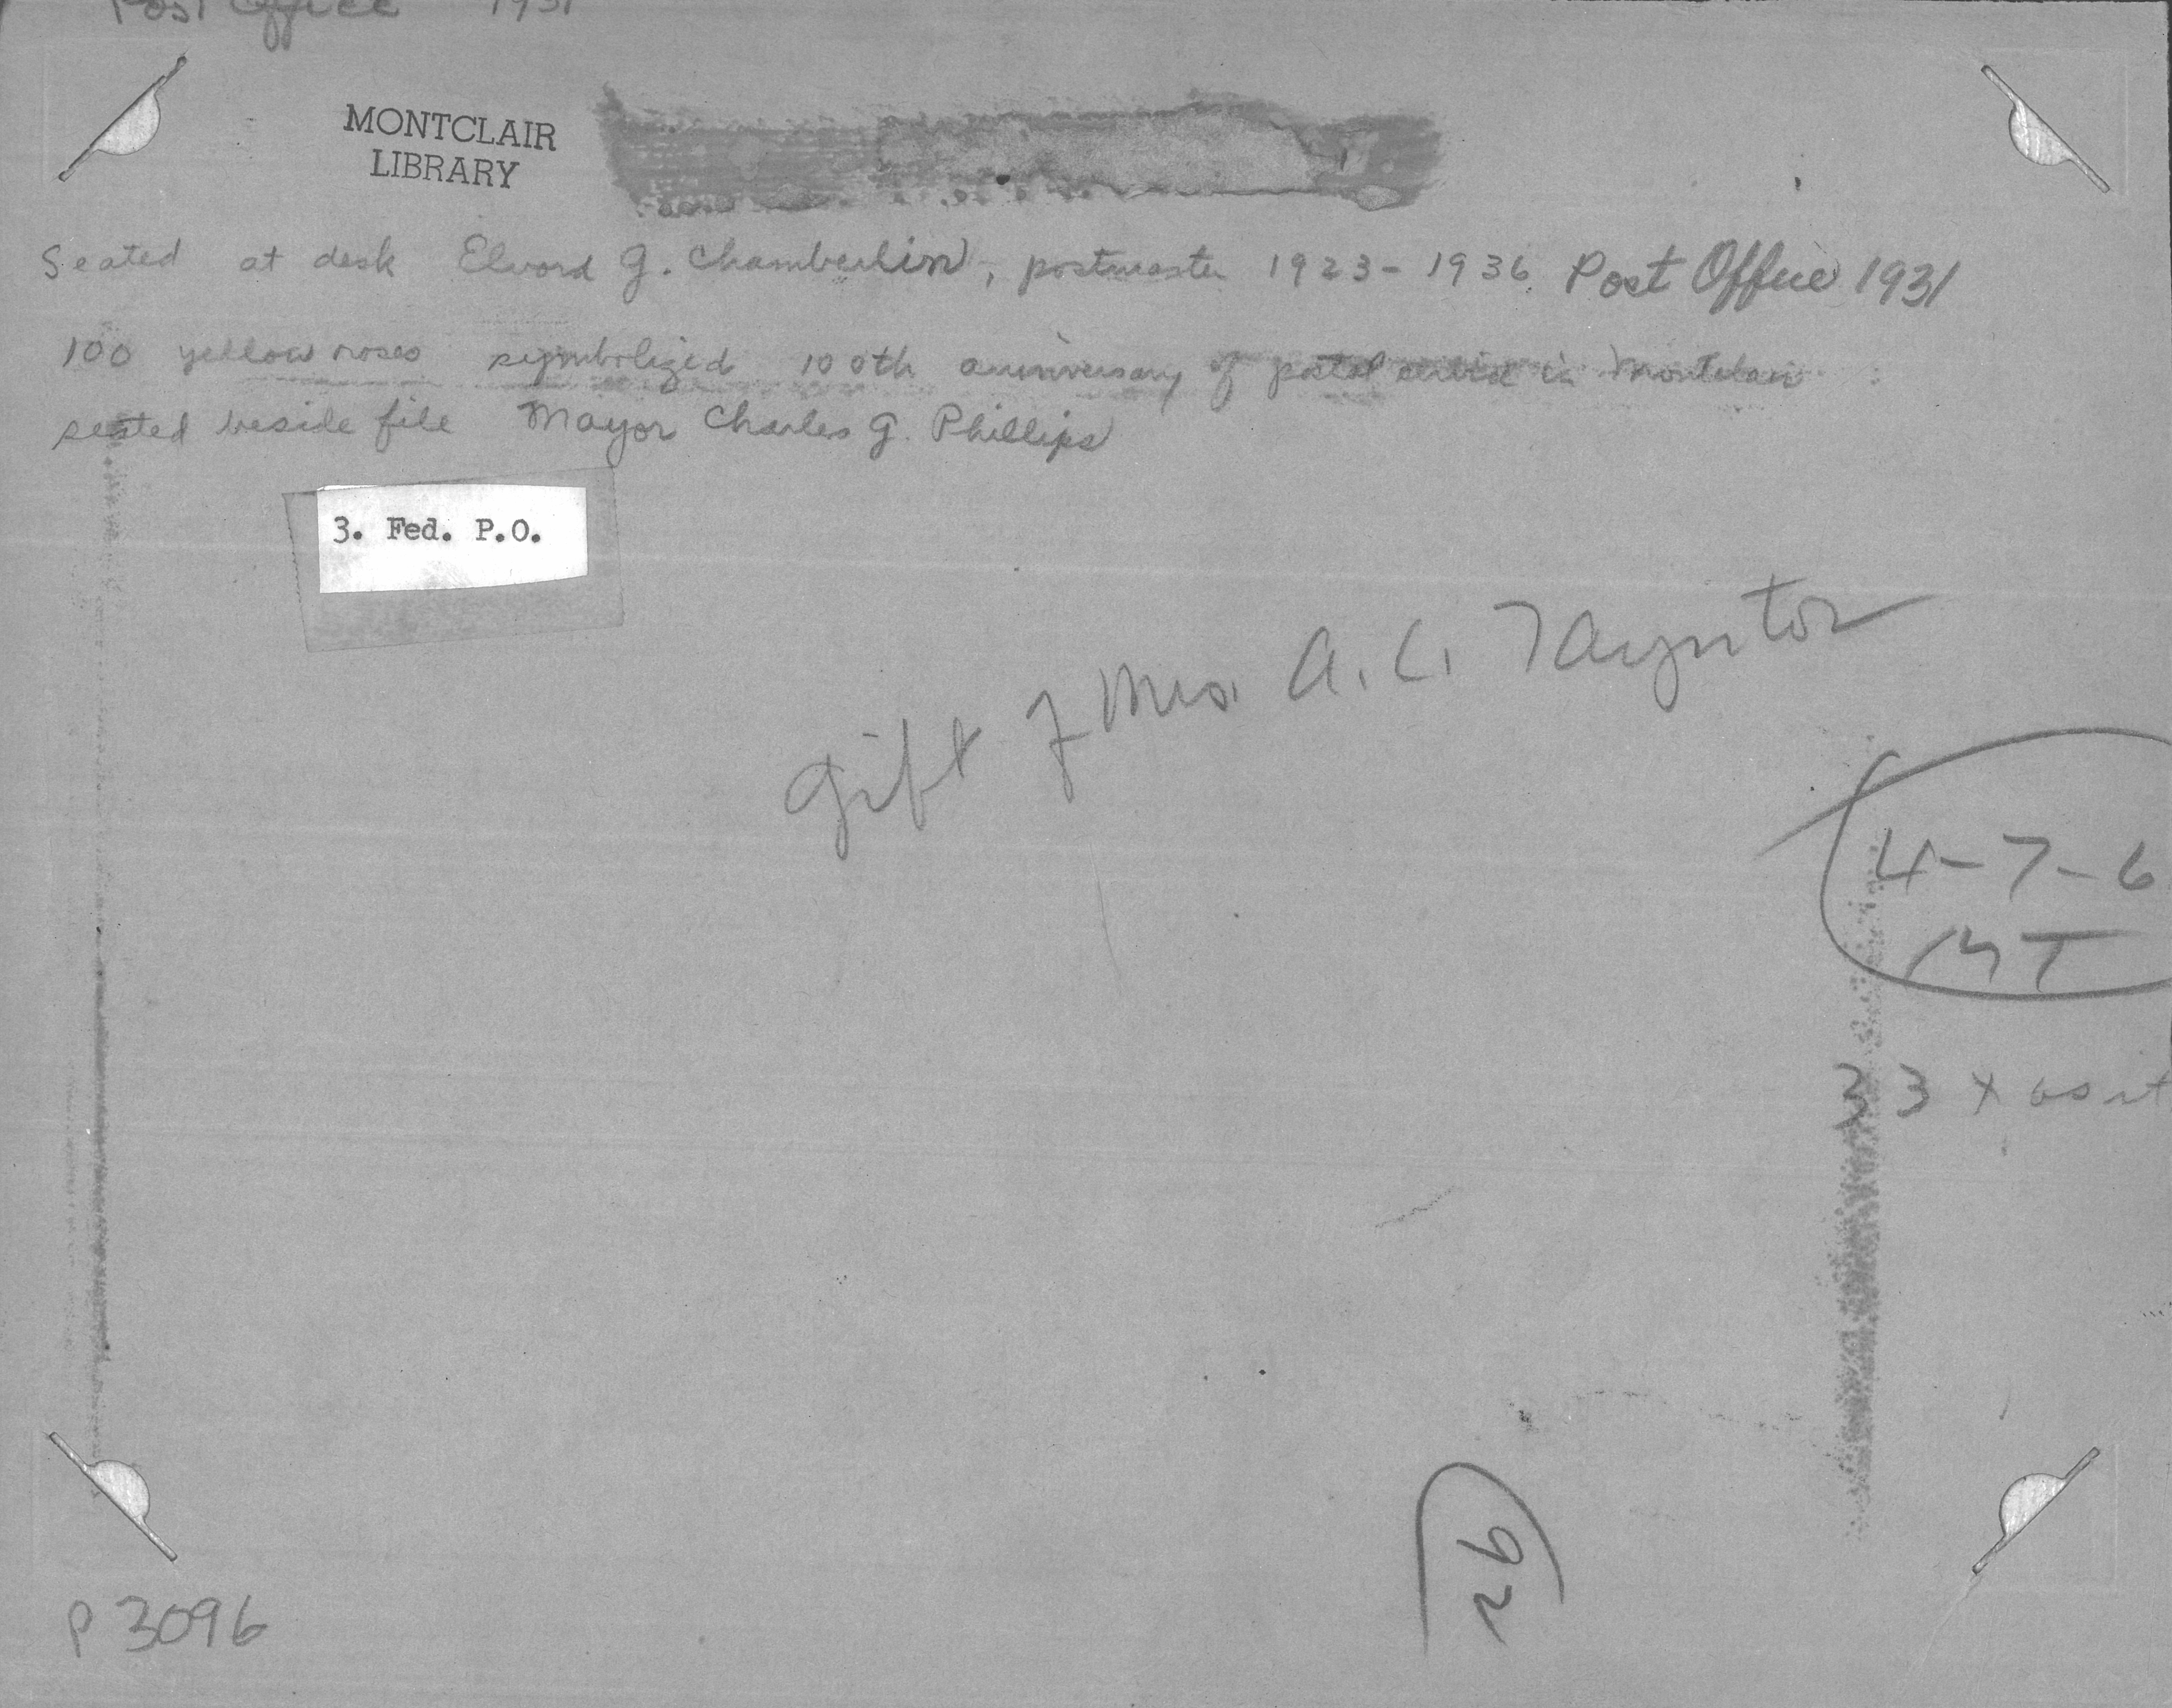 Post Office 1931
MONTCLAIR
LIBRARY
Seated at desk Elvord G. Chamberlin, postmaster 1923-1936 Post Office 1931
100 yellow roses symbolized 100th anniversary of postal service in Montclair
seated beside file Mayor Charles G. Phillips
3. Fed. P.O.
Gift of Mrs. A. C. Taynton
4-7-6
MT
33 x
26
P 3096